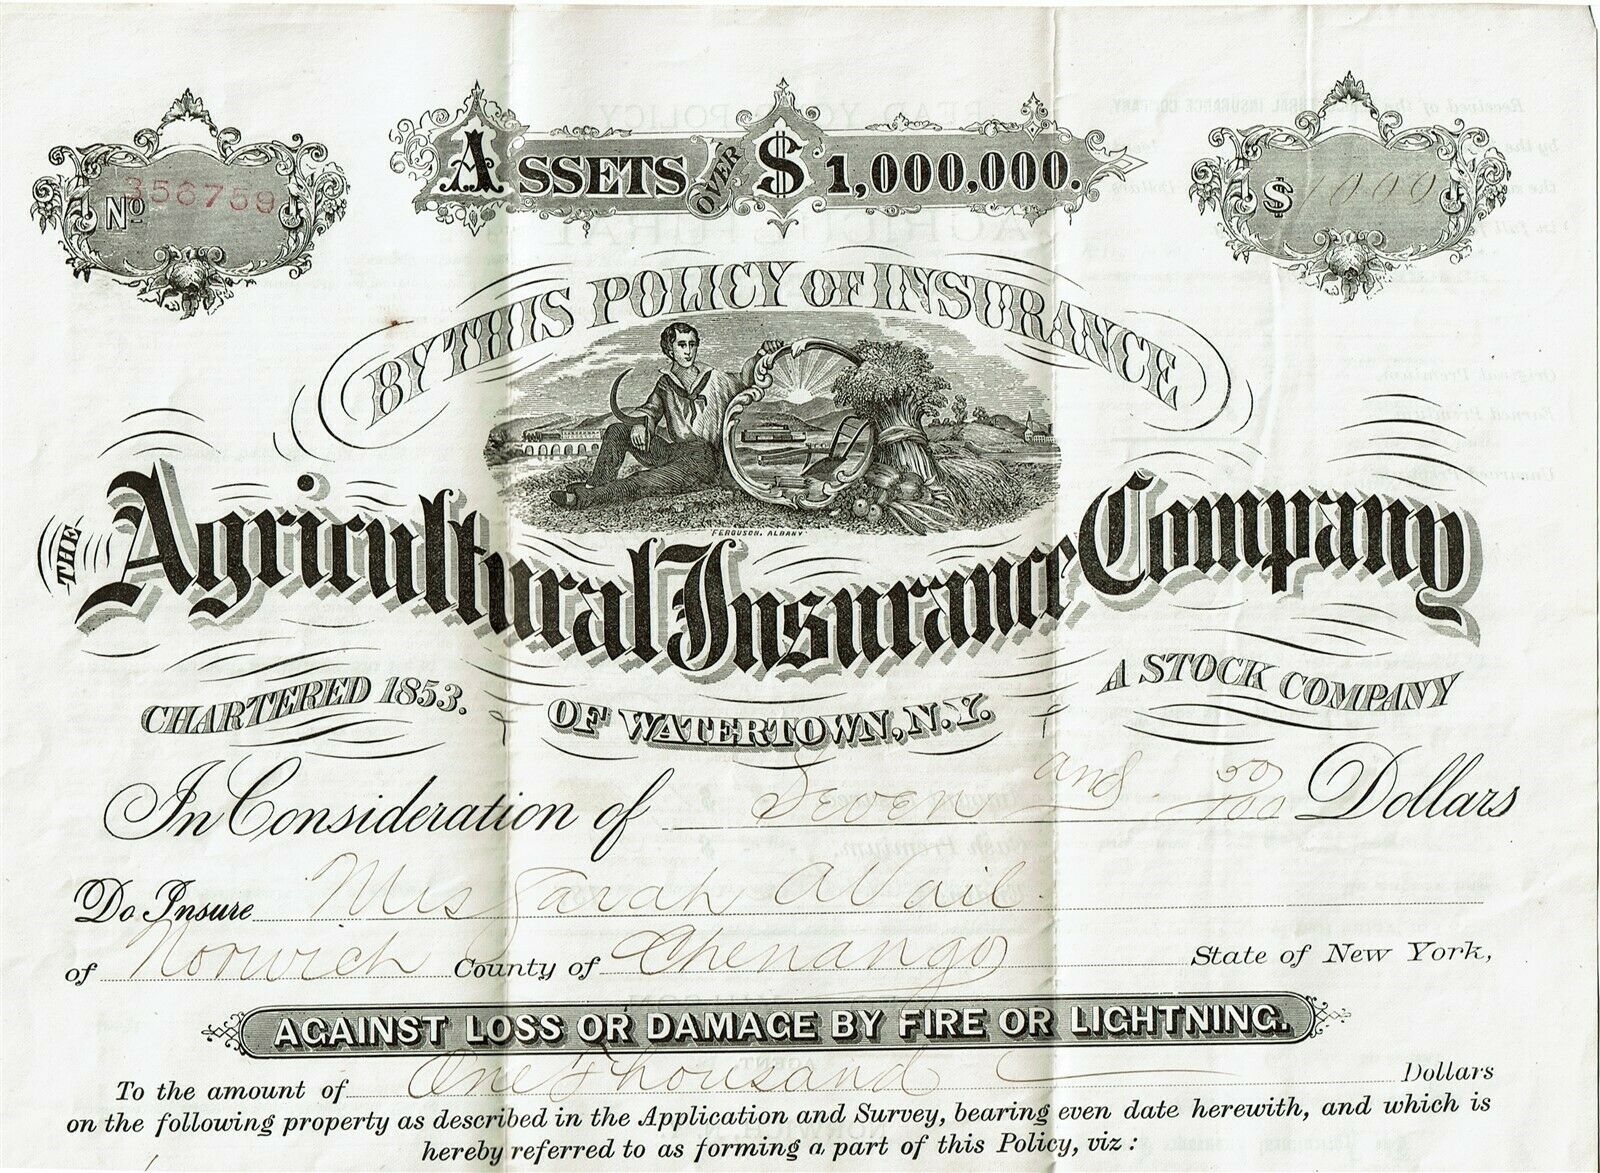 No 356759
ASSETS OVER $1,000,000.
$1000
BY THIS POLICY OF INSURANCE
FERGUSON, ALBANY
THE Agricultural Insurance Company
CHARTERED 1853. OF WATERTOWN, N.Y. A STOCK COMPANY
In Consideration of Seven and 50/100 Dollars
Do Insure Mrs Sarah A Vail
of Norwich County of Chenango State of New York,
AGAINST LOSS OR DAMAGE BY FIRE OR LIGHTNING.
To the amount of One Thousand Dollars
on the following property as described in the Application and Survey, bearing even date herewith, and which is
hereby referred to as forming a part of this Policy, viz: